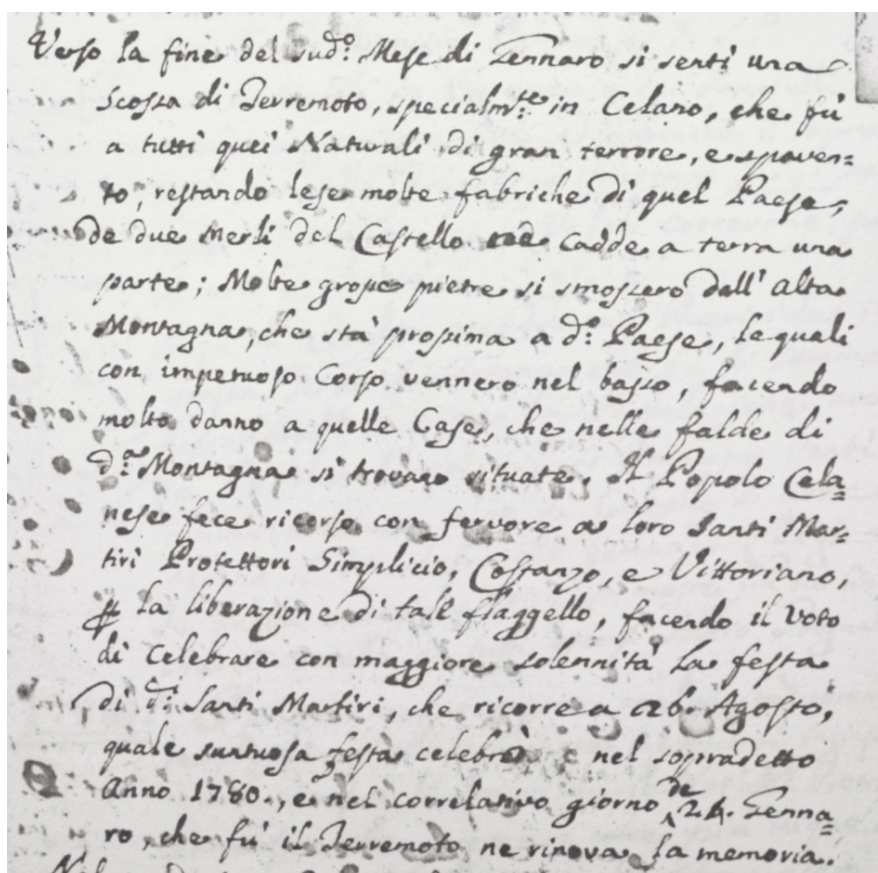 Verso la fine del sud.º Mese di Gennaro si sentì una
scossa di Terremoto, specialm.te in Celano, che fù
a tutti quei Naturali di gran terrore, e spaven=
to, restando lese molte fabriche di quel Paese,
de due Merli del Castello cadde a terra una
parte; Molte grosse pietre si smossero dall' alta
Montagna, che stà prossima a d.º Paese, le quali
con impetuoso Corso vennero nel basso, facendo
molto danno a quelle Case, che nelle falde di
d.ª Montagna si trovano situate. Il Popolo Cela=
nese fece ricorso con fervore a loro Santi Mar=
tiri Protettori Simplicio, Costanzo, e Vittoriano,
la liberazione di tale flaggello, facendo il Voto
di Celebrare con maggiore solennità la festa
di d.i Santi Martiri, che ricorre a 26. Agosto,
quale suntuosa festa celebrò, e nel sopradetto
Anno 1780., e nel correlativo giorno de 24. Genna=
ro, che fù il Terremoto ne rinova la memoria.